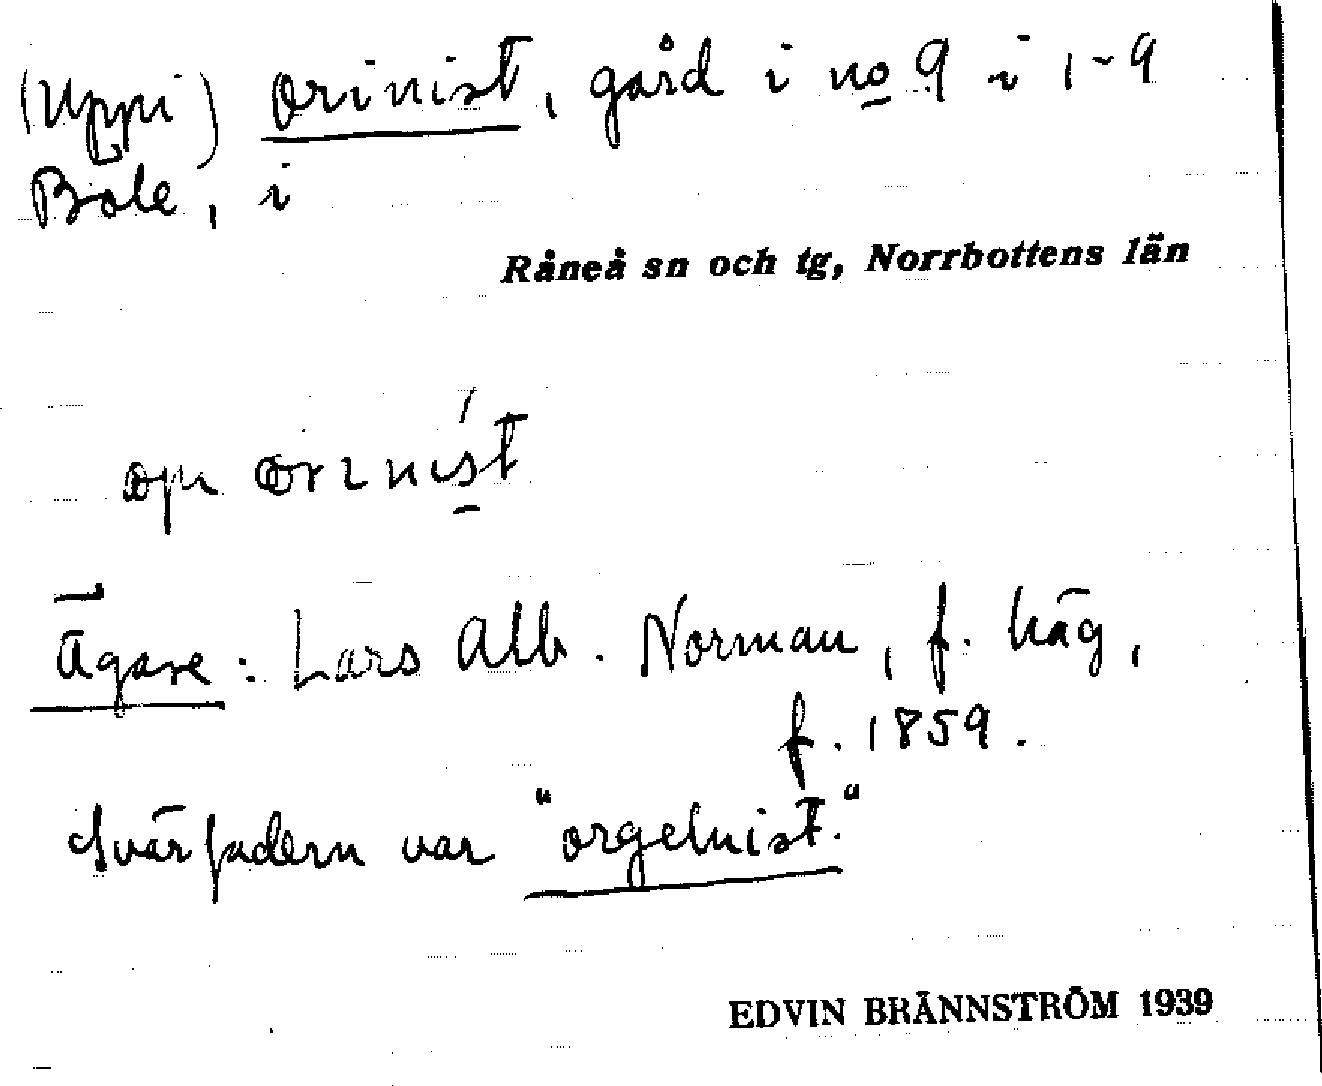 (Uppi) Orinist, gård i no 9 i 1-9
Böle, i
Råneå sn och tg, Norrbottens län
Ägare: Lars Alb. Norman, f. häg,
f. 1859.
Svärfadern var "orgelnist."
EDVIN BRÄNNSTRÖM 1939